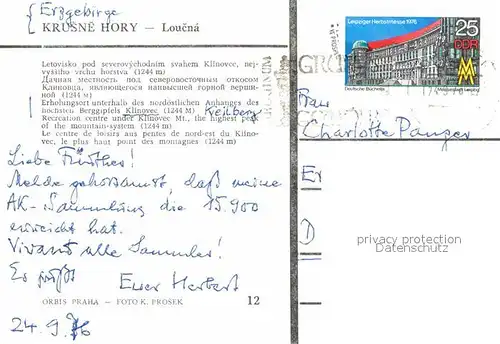 Erzgebirge
KRUŠNÉ HORY — Loučná
Letovisko pod severovýchodním svahem Klínovce, nej-
vyššího vrchu horstva (1244 m)
Дачная местность под северовосточным откосом
Клиновца, являющегося наивысшей горной верши-
ной (1244 m)
Erholungsort unterhalb des nordöstlichen Anhanges des
höchsten Berggipfels Klínovec (1244 m)
Keilberg
Recreation centre under Klínovec Mt., the highest peak
of the mountain-system (1244 m)
Le centre de loisirs aux pentes de nord-est du Klíno-
vec, le plus haut point des montagnes (1244 m)
Liebe Fürther!
Melde gehorsamst, daß meine
AK-Sammlung die 15.900
erreicht hat.
Vivant alle Sammler!
Es grüßt
Euer Herbert
ORBIS PRAHA — FOTO K. PROŠEK
12
24.9.76
Leipziger Herbstmesse 1976
25
DDR
MM
Deutsche Bücherei
Messestadt Leipzig
Frau
Charlotte Pänger
Er
D
privacy protection
VETERANSICHTSKARTEN.DE